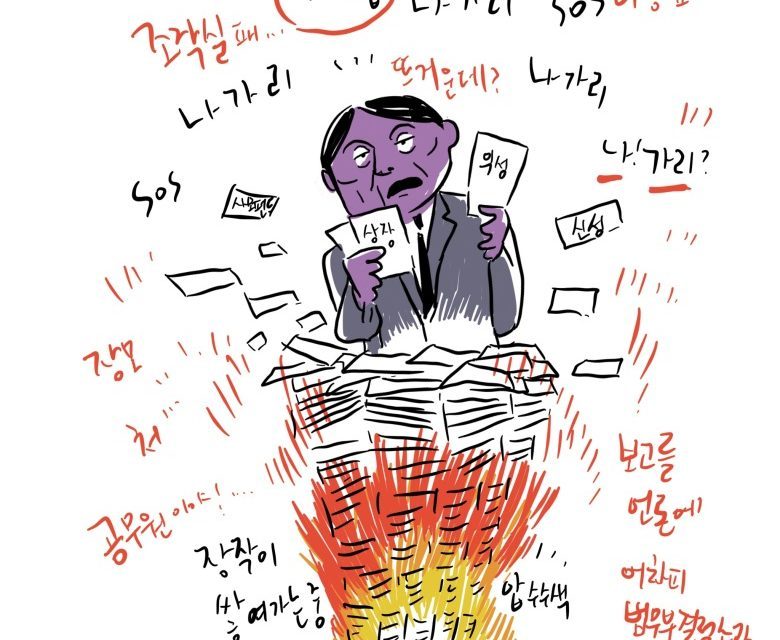 나가리 SOS
조작실패...
나가리
뜨거운데?
나가리
위성
나!가리?
SOS
사모펀드
상장
신성
장모
처...
보고를
언론에
공무원이야!...
장작이
쌓여가는중
압수수색
어차피
법무부